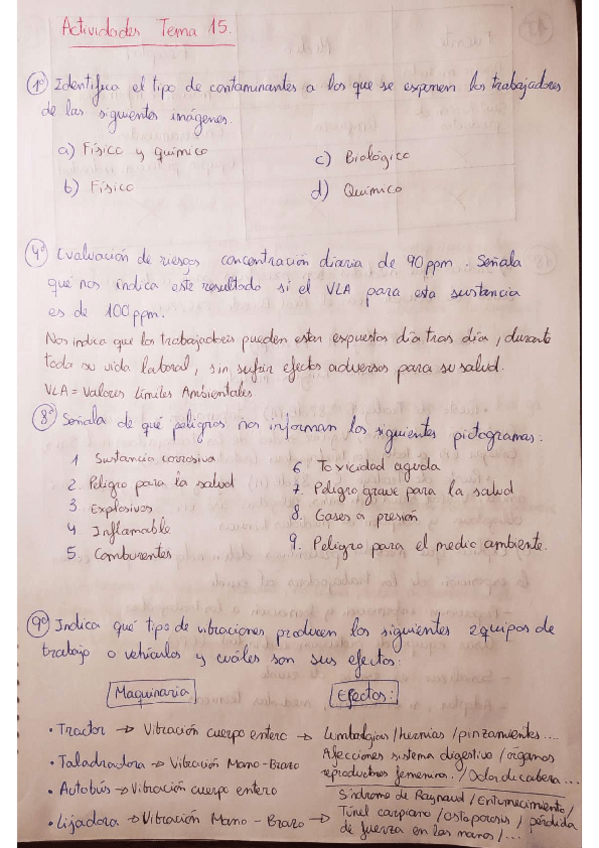 Actividades Tema 15.
1º Identifica el tipo de contaminantes a los que se exponen los trabajadores
de las siguientes imágenes.
a) Físico y químico
c) Biológico
b) Físico
d) Químico
4º Evaluación de riesgos concentración diaria de 90 ppm. Señala
qué nos indica este resultado si el VLA para esta sustancia
es de 100 ppm.
Nos indica que los trabajadores pueden estar expuestos día tras día, durante
toda su vida laboral, sin sufrir efectos adversos para su salud.
VLA = Valores Límites Ambientales
8º Señala de qué peligros nos informan los siguientes pictogramas:
1 Sustancia corrosiva
2. Peligro para la salud
3. Explosivos
4 Inflamable
5. Comburentes
6. Toxicidad aguda
7. Peligro grave para la salud
8. Gases a presión
9. Peligro para el medio ambiente.
9º Indica qué tipo de vibraciones producen los siguientes equipos de
trabajo o vehículos y cuáles son sus efectos:
Maquinaria
Efectos:
• Tractor → Vibración cuerpo entero → Lumbalgias/hernias/pinzamientos...
• Taladradora → Vibración Mano-Brazo
Afecciones sistema digestivo/órganos
reproductores femeninos./Dolor de cabeza...
• Autobús → Vibración cuerpo entero
• Lijadora → Vibración Mano-Brazo →
Síndrome de Raynaud/Entumecimiento/
Túnel carpiano/ostoporosis/pérdida
de fuerza en las manos/...